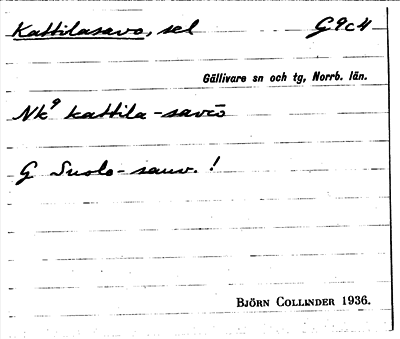 Kattilasavo, sel G9c4
Gällivare sn och tg, Norrb. län.
Nk⁹ kattila-savō
G Suolo-sauv. !
BJÖRN COLLINDER 1936.